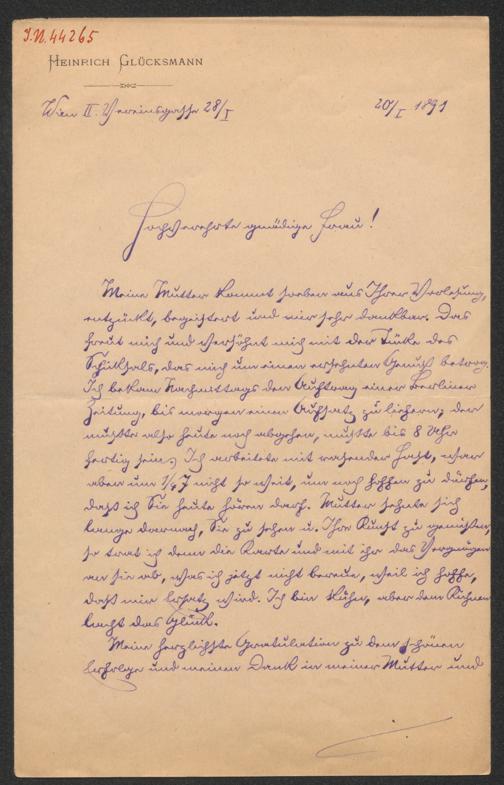 I.N. 44265
HEINRICH GLÜCKSMANN
Wien II. Vereinsgasse 28/I
20/I 1891
Hochverehrte gnädige Frau!
Meine Mutter kommt soeben aus Ihrer Vorlesung,
entzückt, begeistert und mir sehr dankbar. Das
freut mich und versöhnt mich mit der Tücke des
Schicksals, das mich um einen ersehnten Genuß betrog.
Ich bekam Nachmittags den Auftrag einer Berliner
Zeitung, bis morgen einen Aufsatz zu liefern; der
mußte also heute noch abgehen, mußte bis 8 Uhr
fertig sein; Ich arbeitete mit rasender Hast, war
aber um 1/2 7 nicht so weit, um noch hoffen zu dürfen,
daß ich Sie heute hören darf. Mutter sehnte sich
lange darnach, Sie zu sehen u. Ihre Kunst zu genießen,
so trat ich denn die Karte und mit ihr das Vergnügen
an sie ab, was ich jetzt nicht bereue, weil ich hoffe,
daß mir Ersatz wird. Ich bin kühn, aber dem Kühnen
lacht das Glück.
Meine herzlichste Gratulation zu dem schönen
Erfolge und meinen Dank in meiner Mutter und